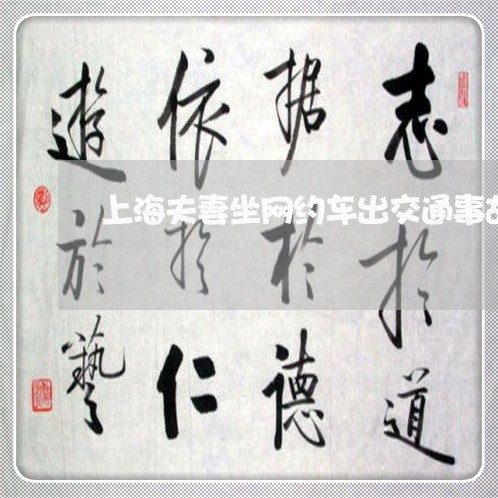 志於道
据於德
依於仁
遊於藝
上海夫妻坐网约车出交通事